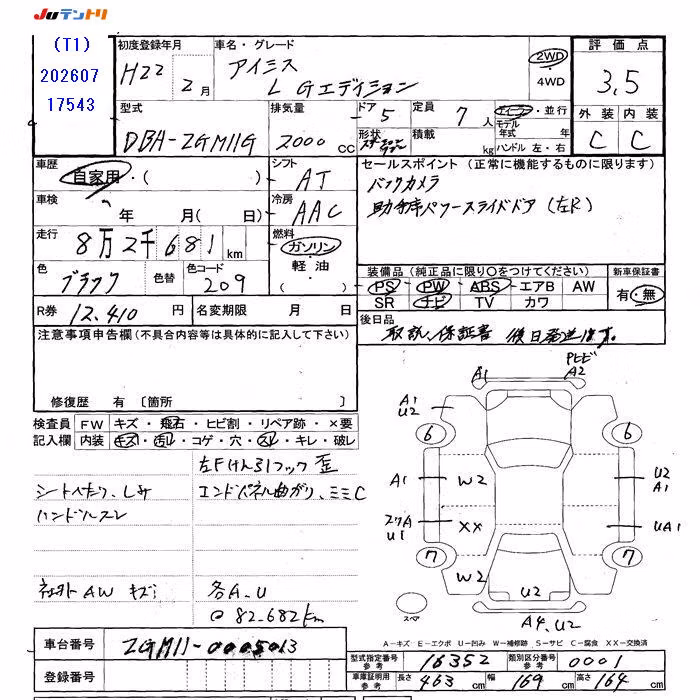 Juテントリ
(T1)
202607
17543
初度登録年月
H22 年 2月
車名・グレード
アイシス
L Gエディション
2WD
4WD
評価点
3,5
外装 内装
C C
型式
DBA-ZGM11G
排気量
2000 cc
ドア 5
形状
定員 7人
積載 kg
ディーラー・並行
モデル年式 年
ハンドル 左・右
車歴
自家用・( )
車検
年 月( 日)
走行
8万2千681km
色
ブラック
色替
色コード
209
シフト
AT
冷房
AAC
燃料
ガソリン
軽油
( )
セールスポイント (正常に機能するものに限ります)
バックカメラ
助手席パワースライドドア (左R)
装備品 (純正品に限り○をつけてください)
PS PW ABS エアB AW
SR ナビ TV カワ
新車保証書
有・無
R券 12,410 円
名変期限 月 日
後日品
取説、保証書 後日発送します。
注意事項申告欄 (不具合内容等は具体的に記入して下さい)
修復歴 有 〔箇所 〕
検査員記入欄
FW キズ・飛石・ヒビ割・リペア跡・×要
内装 キズ・汚レ・コゲ・穴・スレ・キレ・破レ
左Fけん引フック歪
シートへたり、しみ
エンドパネル曲がり、ミミC
ハンドルスレ
AW キズ
各A.U
◎82.682km
A1
Pヒビ
A2
A1
U2
6
6
A1
W2
U2
A1
U1
XX
UA1
7
7
W2
U2
スペア
A4,U2
A-キズ E-エクボ U-凹み W-補修跡 S-サビ C-腐食 XX-交換済
車台番号
ZGM11-0005013
登録番号
型式指定番号 参考
16352
類別区分番号 参考
0001
車庫証明用 参考
長さ 463 cm 幅 169 cm 高さ 164 cm